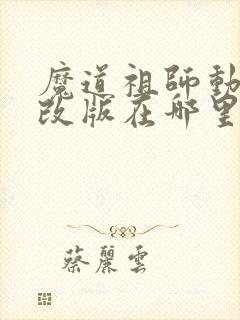 魔道祖師動
改版在哪里
蔡麗雲